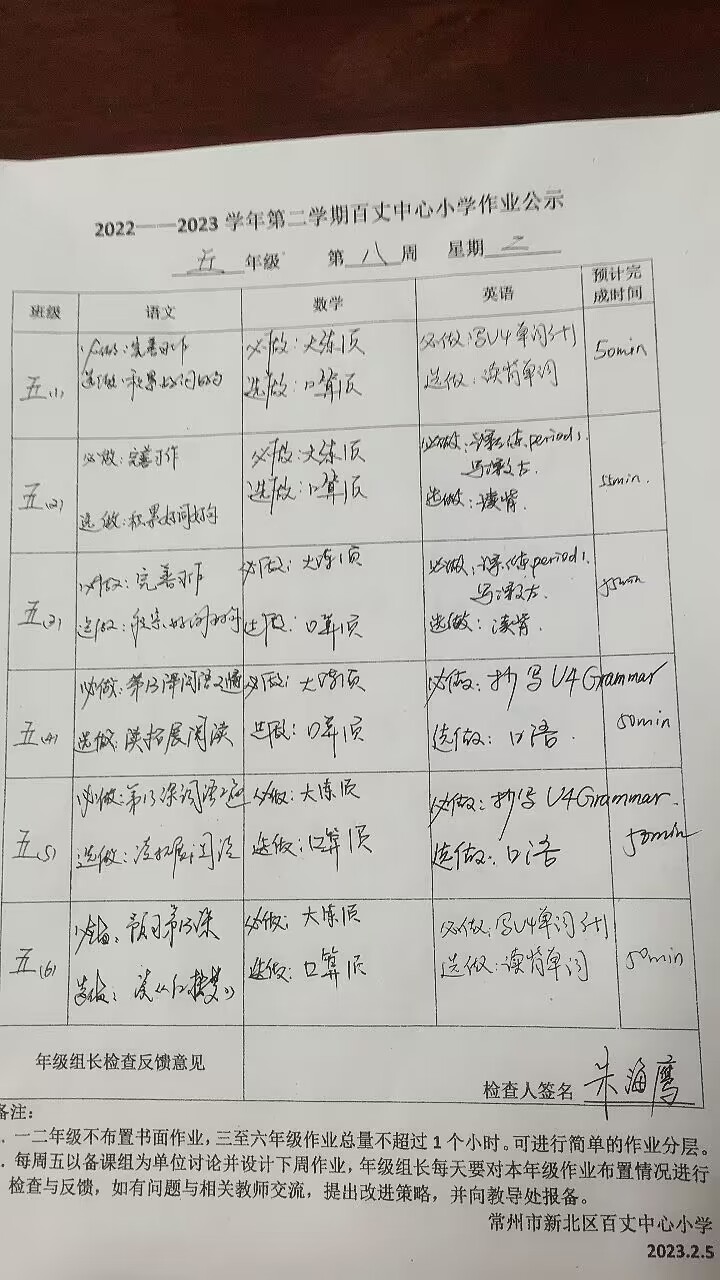 2022——2023 学年第二学期百丈中心小学作业公示
五 年级 第 八 周 星期 二
班级 语文 数学 英语 预计完成时间
五(1)
必做:完善习作
选做:积累好词好句
必做:大练1页
选做:口算1页
必做:写U4单词
选做:读背单词
50min
五(2)
必做:完善习作
选做:积累好词好句
必做:大练1页
选做:口算1页
必做:课传period1.
写课文
选做:读背.
55min.
五(3)
必做:完善习作
选做:积累好词好句
必做:大练1页
选做:口算1页
必做:课传period1.
写课文
选做:读背.
55min
五(4)
必做:第13课词语2遍
选做:读拓展阅读
必做:大练1页
选做:口算1页
必做:抄写U4 Grammar
选做:口语
50min
五(5)
必做:第13课词语2遍
选做:读拓展阅读
必做:大练1页
选做:口算1页
必做:抄写U4 Grammar.
选做:口语
50min
五(6)
必做:预习第13课
选做:读《红楼梦》
必做:大练1页
选做:口算1页
必做:写U4单词
选做:读背单词
50min
年级组长检查反馈意见
检查人签名 朱海鹰
备注:
.一二年级不布置书面作业,三至六年级作业总量不超过 1 个小时。可进行简单的作业分层。
.每周五以备课组为单位讨论并设计下周作业,年级组长每天要对本年级作业布置情况进行
检查与反馈,如有问题与相关教师交流,提出改进策略,并向教导处报备。
常州市新北区百丈中心小学
2023.2.5